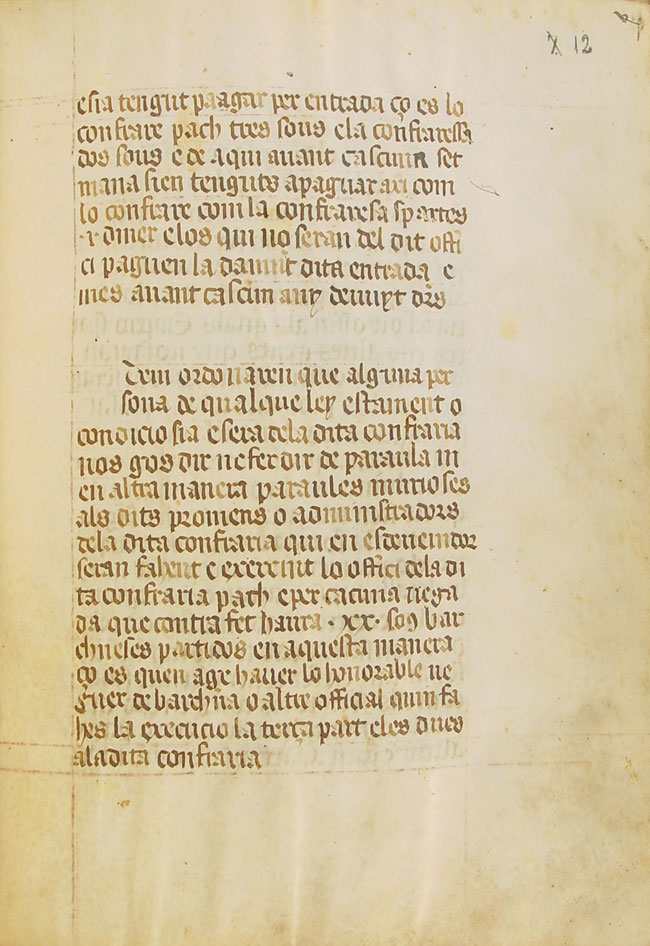 X 12
e sia tengut paagar per entrada ço es lo
confrare pach tres sous e la confraressa
dos sous e de aqui auant cascuna set
mana sien tenguts apaguar axi com
lo confrare com la confraresa sp artes
·i· diner e los qui no seran del dit offi
ci paguen la damunt dita entrada e
mes auant cascun any deuuyt drs
Item ordonaren que alguna per
sona de qualque ley estament o
condicio sia e sera de la dita confraria
nos gos dir ne fer dir de paraula ni
en altra manera paraules iniurioses
als dits promens o administradors
de la dita confraria qui en esdeuenidor
seran fahent e exercint lo offici de la di
ta confraria pach e per cacuna uega
da que contra fet haura ·xx· sos bar
chneses partidos en aquesta manera
ço es quen age hauer lo honorable ue
guer de barchna o altre official quin fa
hes la execucio la terça part e les dues
a la dita confraria